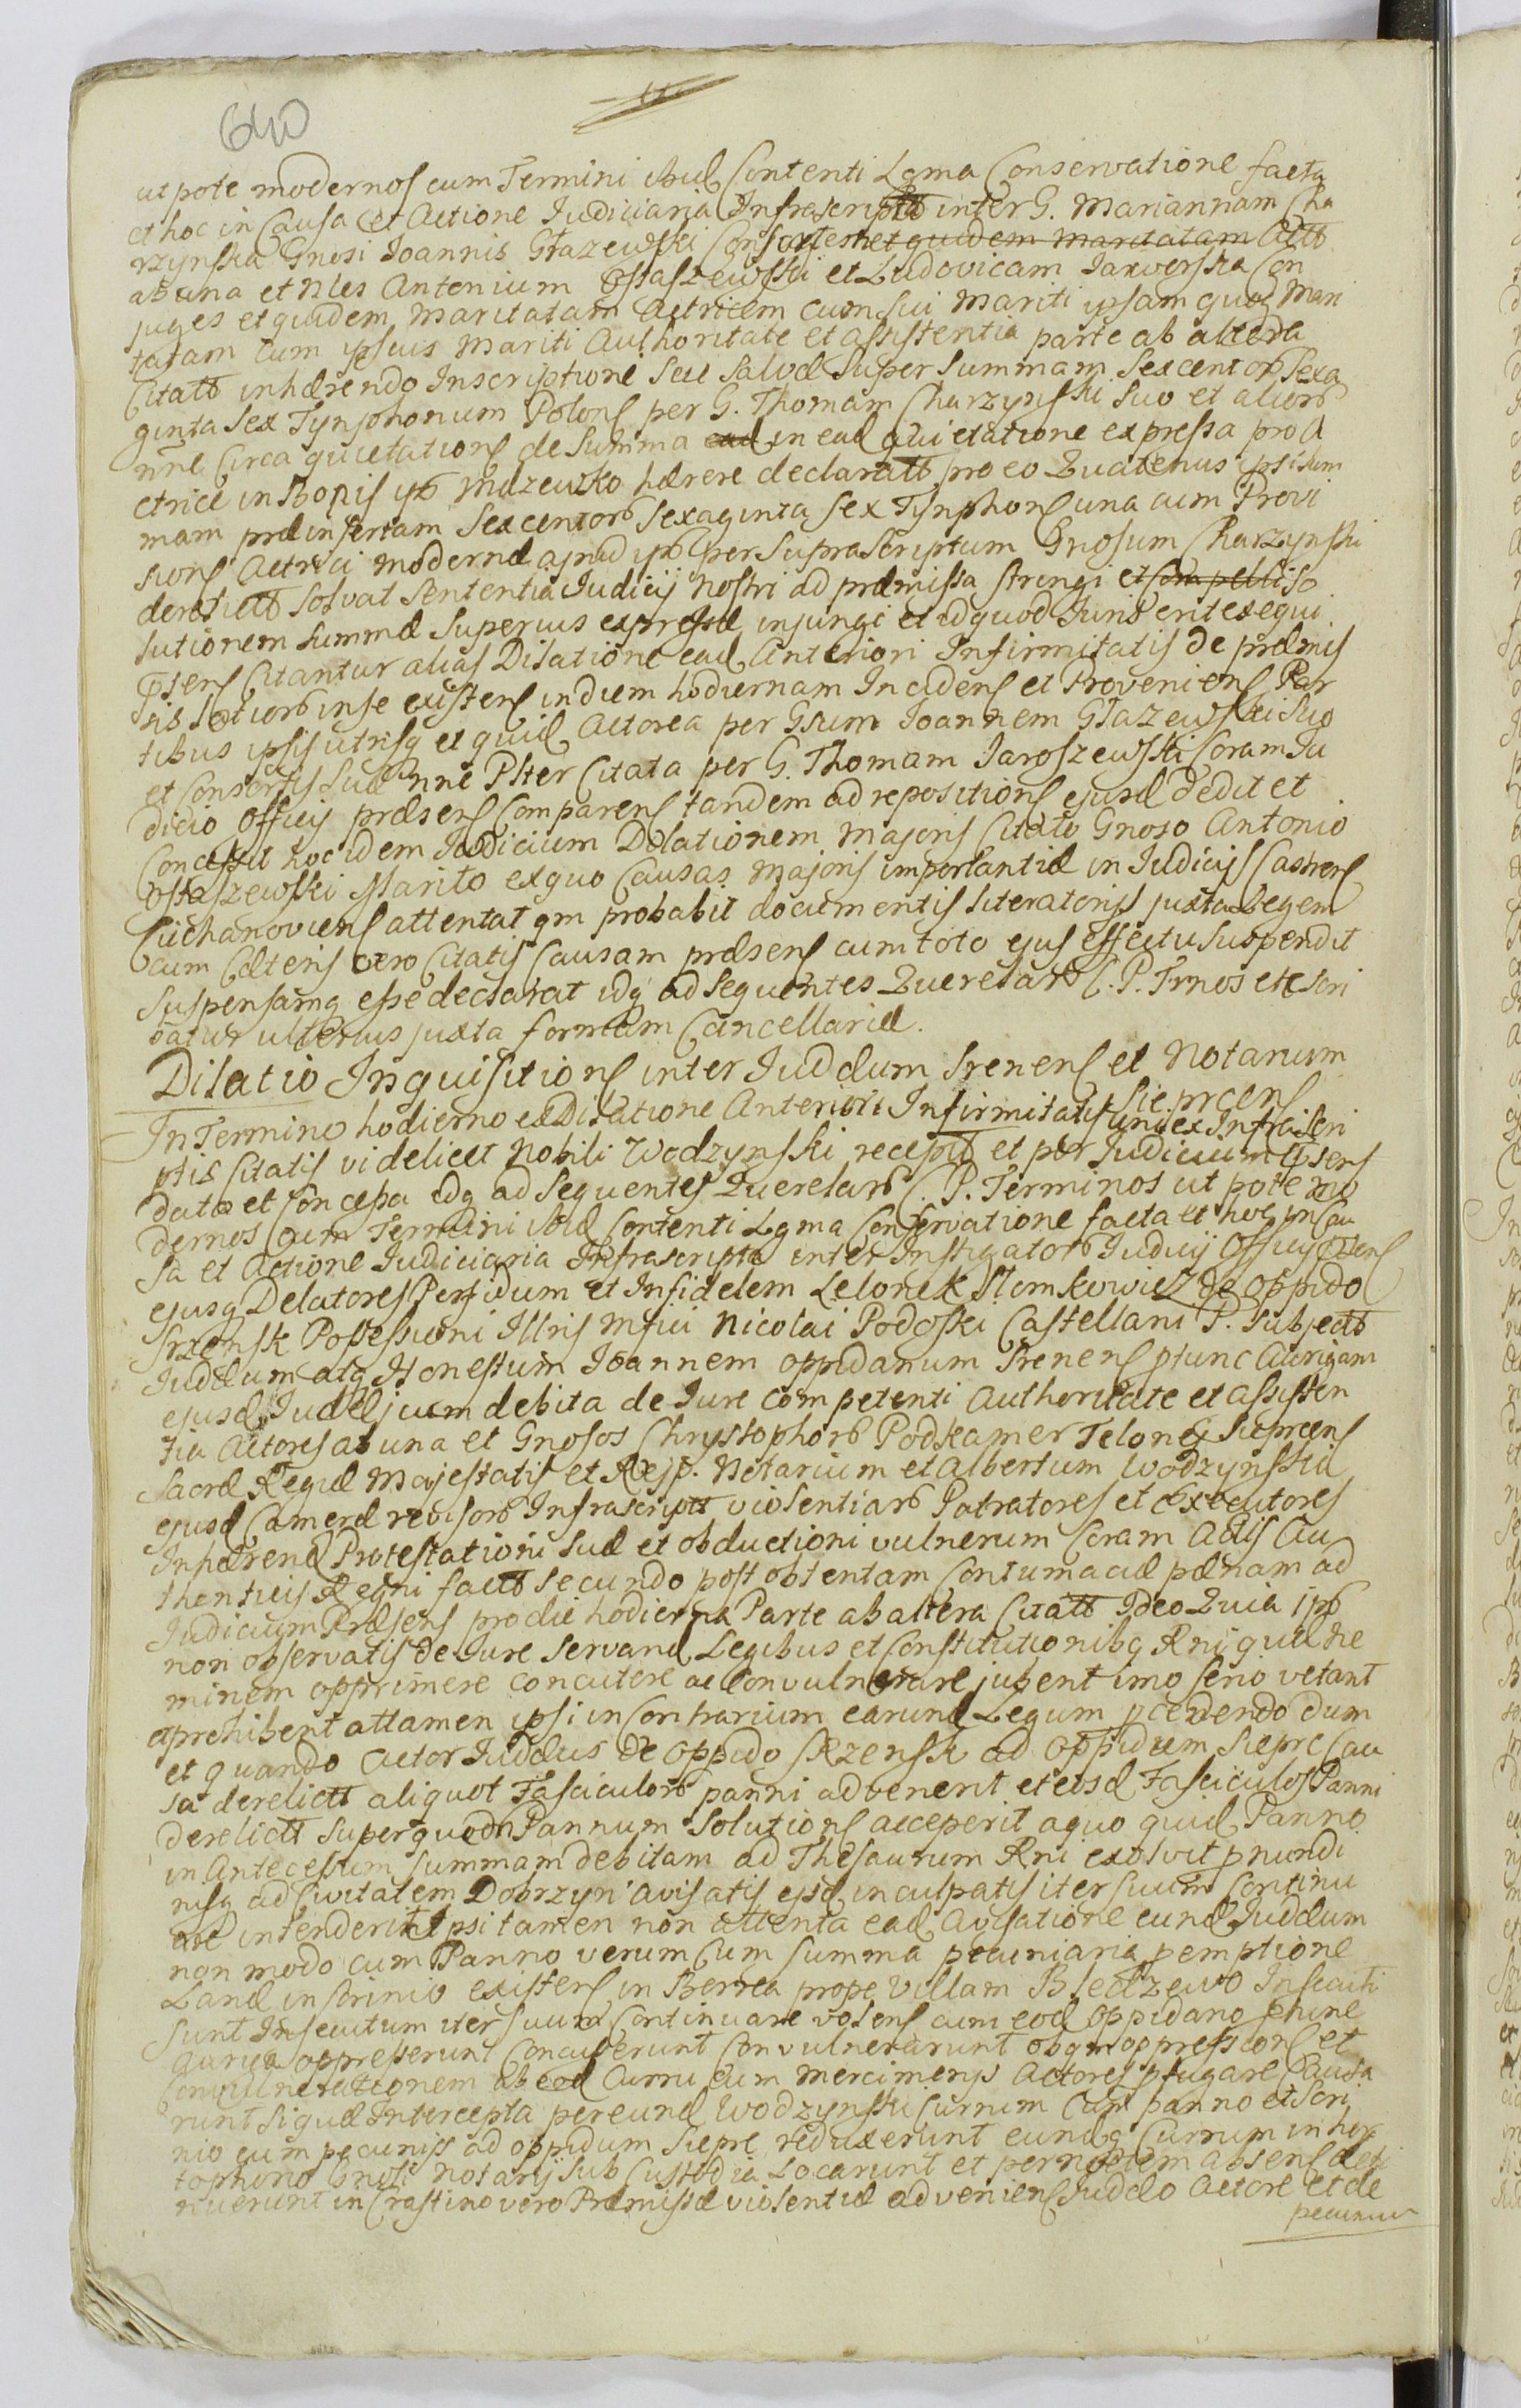 640
ut pote modernos cum Termini ibid Contenti Lgma Conservatione facta
et hoc in Causa et Actione Iudiciaria Infrascripta inter G. Mariannam Cha
rzynska Gnosi Ioannis Głazewski Consortem et quidem maritatam Actō
ab una et Nles Antonium Ostaszewski et Ludovicam Jaxverska Con
juges et quidem Maritatam Actricem cum sui Mariti ipsam quoq Mari
tatam cum ipsius Mariti Authoritate et assistentia parte ab altera
Citatō inhærendo Inscriptione Seu Salvæ Super Summam Sexcentorō Sexa
ginta Sex Tynphonum Polonę per G. Thomam Charzynski Suo et aliorō
nne Circa quietationę de Summa ead in ead quietatione expressa pro A
ctrice in Bonis Mazewko hærere declaratō pro eo Quatenus ipsi Sum
mam præinsertam Sexcentorō Sexaginta Sex Tynphonę una cum Provi
sionę Actrici modernæ apud per Suprascriptum Gnosum Charzynski
derelictō Solvat Sententia Iudicij Nostri ad præmissa Stringi et Compelli So
lutionem Summæ Superius expressæ injungi et id quod Iuris erit exequi
Citantur alias Dilatione ead Anteriori Infirmitatis de præmis
sis in se existenę in diem hodiernam Incidenę et Provenienę Par
tibus ipsis utrisq et quid Actorea per Gsum Ioannem Głazewski Suo
et Consortis Suæ nne Citata per G. Thomam Jaroszewski Coram Iu
dicio Officij præsenę Comparenę tandem ad repositionę ejusd dedit et
Concessit hoc idem Iudicium Dilationem Majoris Citato Gnoso Antonio
Ostaszewski Marito ex quo Causas Majoris importantiæ in Iudicijs Castrenę
Ciechanovienę attentat qm probabit documentis literatorijs juxta Legem
cum Cæteris vero Citatis Causam præsenę cum toto ejus effectu Suspendit
Suspensamq esse declarat idq ad Sequentes Querelarō C. P. Trnos etc Scri
batur ulterius juxta formam Cancellariæ.
Dilatio Inquisitionę inter Iudæum Srenenę et Notarium
Sieprcenę
In Termino hodierno ex Dilatione Anteriori Infirmitatis uni ex Infrascri
ptis Citatis videlicet Nobili Wodzynski receptō et per Iudicium
data et Concessa idq ad Sequentes Querelarō C. P. Terminos ut pote mo
dernos cum Termini ibid Contenti Lgma Conservatione facta et hoc in Cau
sa et Actione Iudiciaria Infrascripta inter Instigatorō Iudicij Officij
ejusq Delatores Perfidum et Infidelem Lelonek Slomkowicz de Oppido
Srzensk Possessioni Illris Mfici Nicolai Podoski Castellani P. Subjectō
Iudæum atq Honestum Ioannem Oppidanum Srenenę ptunc Aurigam
ejusd Iudæi cum debita de Iure Competenti Authoritate et Assisten
tia Actores ab una et Gnosos Chrystophorō Podkamer Telonei Sieprcenę
Sacræ Regiæ Majestatis et Reip. Notarium et Albertum Wodzynski
ejusd Cameræ revisorō Infrascriptō violentiarō Patratores et Executores
Inhærend Protestationi Suæ et obductioni vulnerum Coram Actis Au
thenticis Regni factō Secundo post obtentam Contumaciæ pænam ad
Iudicium Præsenę pro die hodierna Parte ab altera Citatō Ideo Quia
non observatis de Iure Servand Legibus et Constitutionibq Rni quæ ne
minem opprimere concutere ac Convulnerare jubent imo Serio vetant
et prohibent attamen ipsi in Contrarium earund Legum pcedendo dum
et quando Actor Iudæus de Oppido Srzensk ad Oppidum Sieprc Cau
sa derelictō aliquot Fasciculorō panni advenerit et eosd Fasciculos Panni
derelictō Super quod Pannum Solutionę acceperit a quo quid Panno
in Antecessum Summam debitam ad Thesaurum Rni exolvit p nundi
nisq ad Civitatem Dobrzyn avisatis ejsd inculpatis iter Suum Continu
are intenderit Ipsi tamen non attenta ead Avisatione eund Iudæum
non modo cum Panno verum Cum Summa pecuniaria p emptione
Lanæ in Scrinio existenę in Berrea prope Villam Bledzewo Insecuti
Sunt Insecutum iter Suum Continuare volenę cum eod Oppidano
Auriga oppresserunt Concuserunt Convulnerarunt ob qm oppressionę et
Convulnerationem ab eod Curru cum Mercimonijs Actores pfugare Causa
runt Siquæ Intercepta per eund Wodzynski Currum Cum panno et Scri
nio cum pecuniss ad Oppidum Sieprc reduxerunt eundq Currum in
Gnosi Notarij Sub Custodia Locarunt et per noctem absenę deti
nuerunt in Crastino vero Præmissæ violentiæ advenienę Iudæo Actore et de
pecunijs